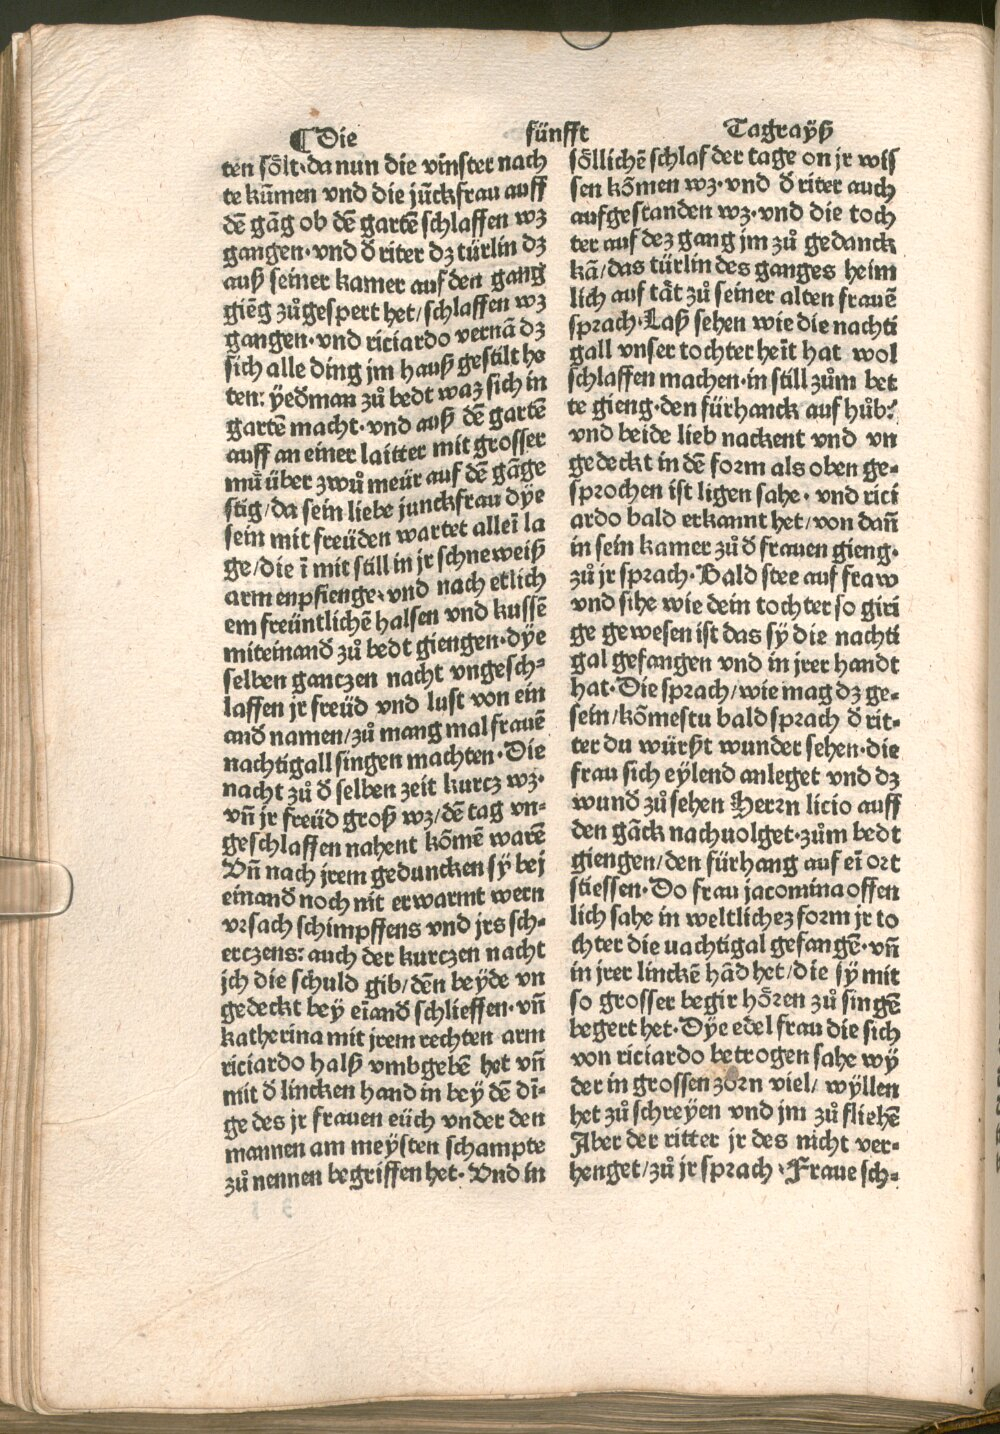 ¶Die fünfft Tagraÿß
ten sölt·da nun die vinster nach
te kūmen vnd die jūckfrau auff
dē gāg ob dē gartē schlaffen wʒ
gangen·vnd đ riter dʒ türlin dʒ
auß seiner kamer auf den gang
giēg zůgespert het/schlaffen wʒ
gangen·vnd riciardo vernā dʒ
sich alle ding jm hauß gestilt ho
ten: ÿeđman zů bedt waʒ sich in
gartē macht·vnd auß dē gartē
auff an einer laitter mit grosser
mů über zwů meür auf dē gāge
stig/da sein liebe junckfrau dÿe
sein mit freüden wartet alleī la
ge/die ī mit still in jr schneweiß
arm enpfienge·vnd nach etlich
em freüntlichē halsen vnd kussē
miteinanđ zů bedt giengen·dÿe
selben ganczen nacht vngesch⸗
laffen jr freüd vnd lust von ein
anđ namen/zů mang mal frauē
nachtigall singen machten·Die
nacht zů đ selben zeit kurcz wʒ·
vn̄ jr freüd groß wʒ/dē tag vn⸗
geschlaffen nahent kōmē warē
Vn̄ nach jrem geduncken sÿ bej
einanđ noch nit erwarmt wern
vrsach schimpffens vnd jrs sch⸗
erczens: auch der kurczen nacht
jch die schuld gib/dēn beÿde vn
gedeckt beÿ eīanđ schlieffen·vn̄
katherina mit jrem rechten arm
riciardo halß vmbgebē het vn̄
mit đ lincken hand in beÿ dē dī⸗
ge des jr frauen eüch vnder den
mannen am meÿsten schampte
zů nennen begriffen het·Vnd in
söllichē schlaf der tage on jr wis
sen kōmen wʒ·vnd đ riter auch
aufgestanden wʒ·vnd die toch
ter auf deʒ gang jm zů gedanck
kā/das türlin des ganges heim
lich auf tät zů seiner alten frauē
sprach·Laß sehen wie die nachti
gall vnser tochter heīt hat wol
schlaffen machen·in still zům bet
te gieng·den fürhanck auf hůb:
vnd beide lieb nackent vnd vn
gedeckt in dē form als oben ge⸗
sprochen ist ligen sahe·vnd rici
ardo bald erkannt het/von dan̄
in sein kamer zů đ frauen gieng·
zů jr sprach·Bald stee auf fraw
vnd sihe wie dein tochter so giri
ge gewesen ist das sÿ die nachti
gal gefangen vnd in jrer handt
hat·Die sprach/wie mag dʒ ge⸗
sein/kōmestu bald sprach đ rit⸗
ter du würßt wunder sehen·die
frau sich eÿlend anleget vnd dʒ
wunđ zů sehen Herrn licio auff
den gāck nachuolget·zům bedt
giengen/den fürhang auf eī ort
stiessen·Do frau jacomina offen
lich sahe in weltlicheʒ form jr to
chter die uachtigal gefangē·vn̄
in jrer linckē hād het/die sÿ mit
so grosser begir hören zů singē
begert het·Dÿe edel frau die sich
von riciardo betrogen sahe wÿ
der in grossen zorn viel/wÿllen
het zů schreÿen vnd jm zů fliehē
Aber der ritter jr des nicht ver⸗
henget/zů jr sprach·Fraue sch⸗